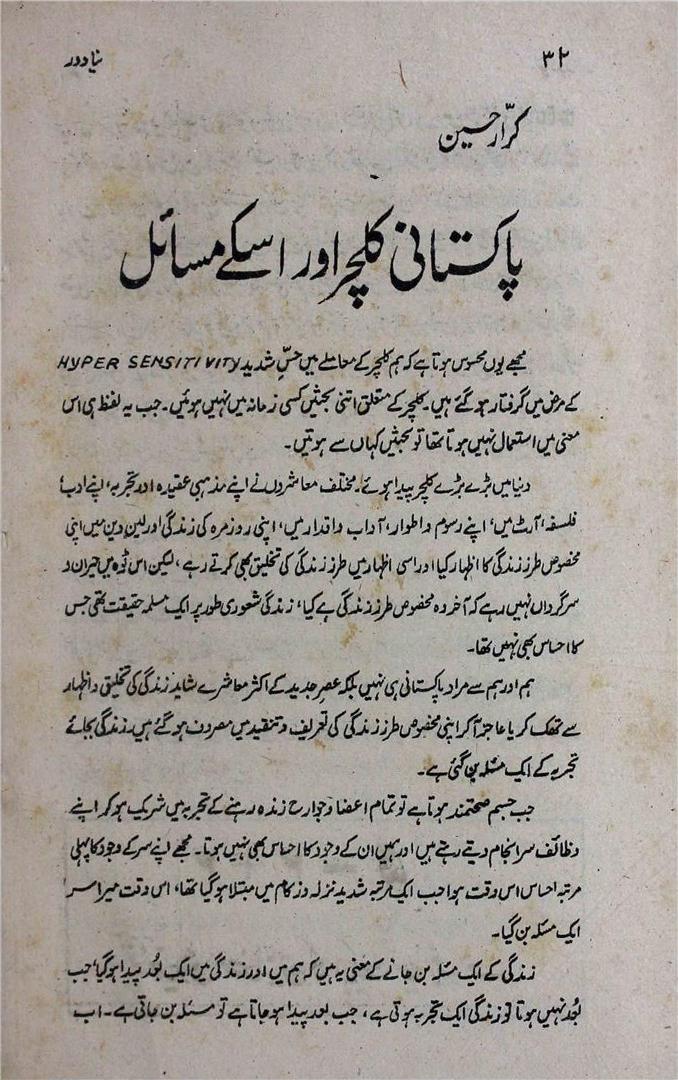 ۳۲
نیا دور
کرّار حسین
پاکستانی کلچر اور اسکے مسائل
مجھے یوں محسوس ہوتا ہے کہ ہم کلچر کے معاملے میں حسِّ شدید HYPER SENSITIVITY
کے مرض میں گرفتار ہو گئے ہیں۔ کلچر کے متعلق اتنی بحثیں کسی زمانہ میں نہیں ہوئیں۔ جب یہ لفظ ہی اس
معنی میں استعمال نہیں ہوتا تھا تو بحثیں کہاں سے ہوتیں۔
دنیا میں بڑے بڑے کلچر پیدا ہوئے۔ مختلف معاشروں نے اپنے مذہبی عقیدہ اور تجربہ، اپنے ادب،
فلسفہ، آرٹ میں، اپنے رسوم و اطوار، آداب و اقدار میں، اپنی روزمرہ کی زندگی اور لین دین میں اپنی
مخصوص طرزِ زندگی کا اظہار کیا اور اسی اظہار میں طرزِ زندگی کی تخلیق بھی کرتے رہے، لیکن اس ٹوہ میں حیران و
سرگرداں نہیں رہے کہ آخر وہ مخصوص طرزِ زندگی ہے کیا، زندگی شعوری طور پر ایک مسلمہ حقیقت تھی جس
کا احساس بھی نہیں تھا۔
ہم اور ہم سے مراد پاکستانی ہی نہیں بلکہ عصرِ جدید کے اکثر معاشرے شاید زندگی کی تخلیق و اظہار
سے تھک کر یا عاجز آ کر اپنی مخصوص طرزِ زندگی کی تعریف و تنقید میں مصروف ہو گئے ہیں۔ زندگی بجائے
تجربہ کے ایک مسئلہ بن گئی ہے۔
جب جسم صحتمند ہوتا ہے تو تمام اعضا و جوارح زندہ رہنے کے تجربہ میں شریک ہو کر اپنے
وظائف سرانجام دیتے رہتے ہیں اور ہمیں ان کے وجود کا احساس بھی نہیں ہوتا۔ مجھے اپنے سر کے وجود کا پہلی
مرتبہ احساس اس وقت ہوا جب ایک مرتبہ شدید نزلہ و زکام میں مبتلا ہو گیا تھا، اس وقت میرا سر
ایک مسئلہ بن گیا۔
زندگی کے ایک مسئلہ بن جانے کے معنی یہ ہیں کہ ہم میں اور زندگی میں ایک بُعد پیدا ہو گیا، جب
بُعد نہیں ہوتا تو زندگی ایک تجربہ ہوتی ہے، جب بعد پیدا ہو جاتا ہے تو مسئلہ بن جاتی ہے۔ اب